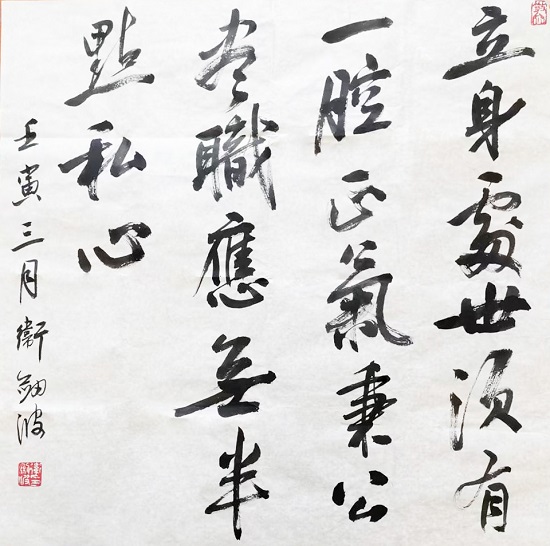 立身處世須有
一腔正氣秉公
盡職應無半
點私心
壬寅三月衛劒波